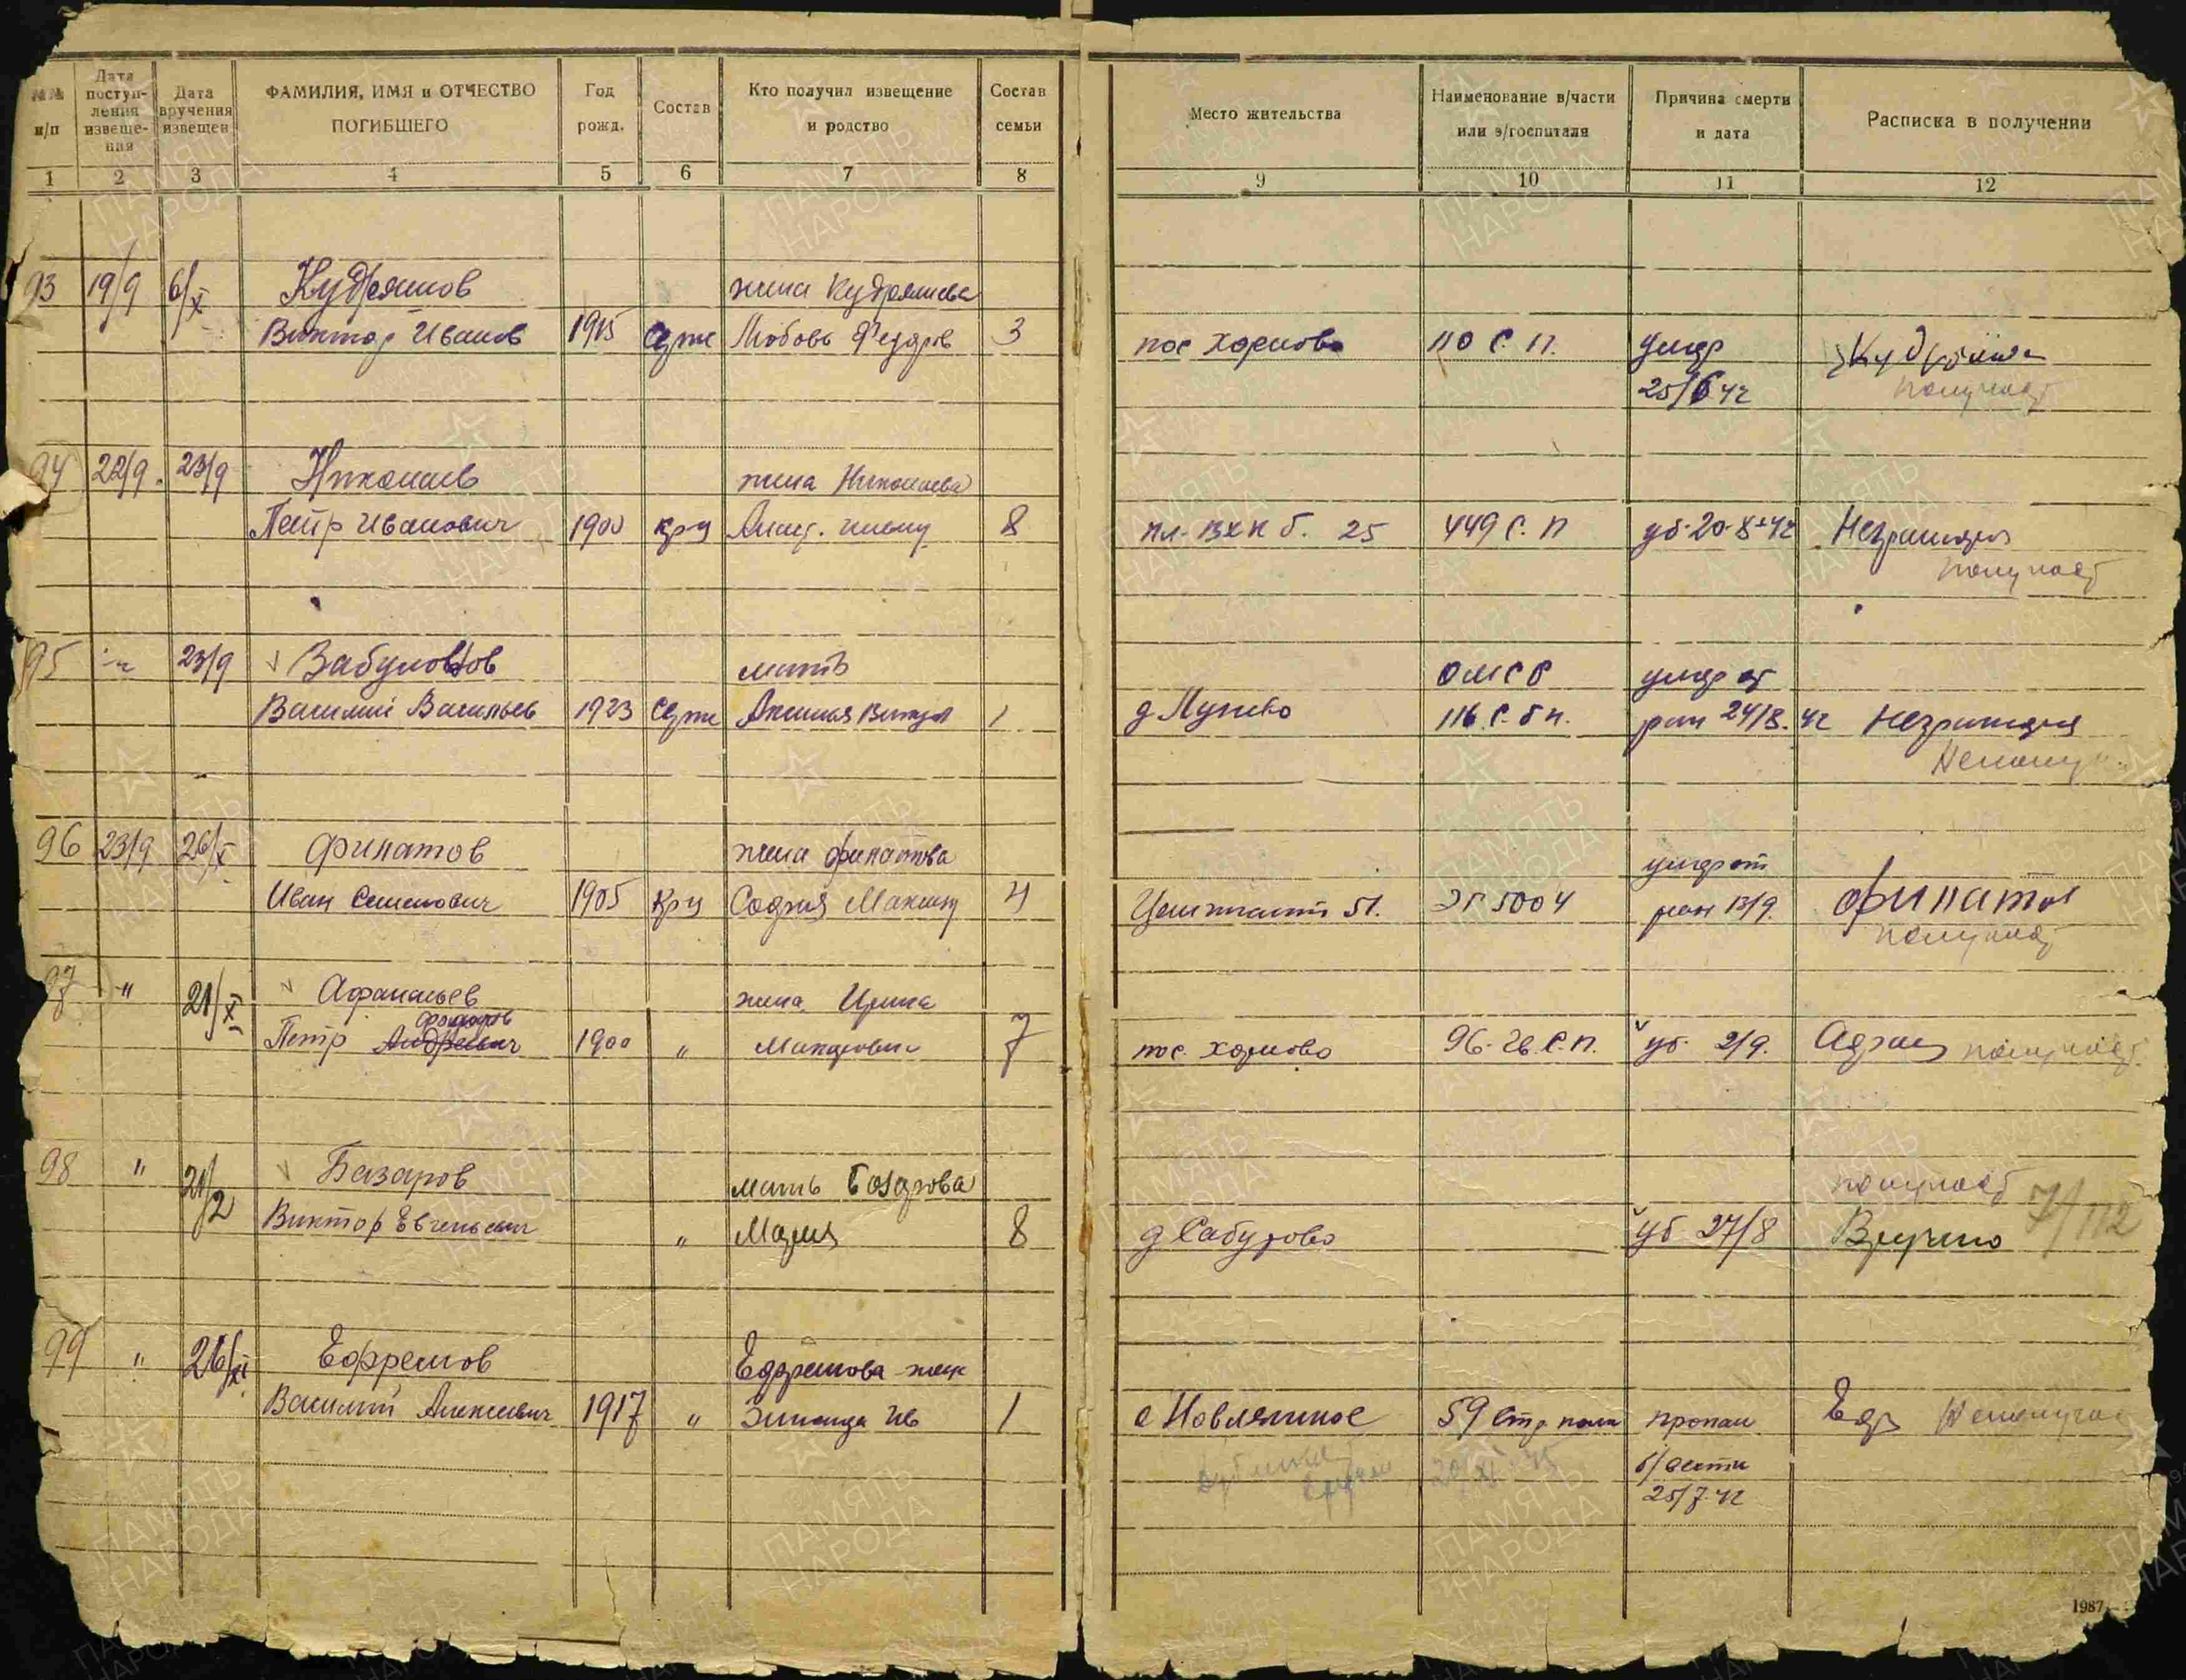 №№ п/п
Дата поступления извещения
Дата вручения извещен
ФАМИЛИЯ, ИМЯ и ОТЧЕСТВО ПОГИБШЕГО
Год рожд.
Состав
Кто получил извещение и родство
Состав семьи
Место жительства
Наименование в/части или э/госпиталя
Причина смерти и дата
Расписка в получении
1 2 3 4 5 6 7 8 9 10 11 12
93 19/9 6/X Кудряшов жена Кудряшева
Виктор Иванов 1905 Серж Любовь Федоров 3 пос Хорлово 110 С. П. умер Кудряшева
25/6 42 получает
94 22/9. 23/9 Николаев жена Николаева
Петр Иванович 1900 кр-ц 8 пл. ВХК б. 25 449 С. П уб. 20-8-42 Неграмотная
получает
95 -"- 23/9 Забуловтов мать ОМСБ умер от
Василий Васильев 1923 Серж 1 д Лукево 116 С. бп. ран 24/8. 42 Неграмотная
Неполуч
96 23/9 26/X Филатов жена Филатова умер от
Иван Семенович 1905 Кр-ц София Максим 4 51. ЭГ 5004 ран 13/9. Филатов
получает
97 " 21/X Афанасьев жена Ирина
Федоров
Петр Андреевич 1900 " Макаровна 7 пос. Хорлово 96-гв. С. П. уб. 2/9. получает
98 " 21/2 Базаров мать Базарова получает 7/112
Виктор Евгеньевич " Мария 8 д Сабурово уб 27/8 Вручено
99 " 26/XI Ефремов Ефремова жена
Василий Алексеевич 1917 " Зинаида Ив 1 с Новлянское 59 стр полк пропал Ефр Неполучает
б/вести
25/7-42
1987